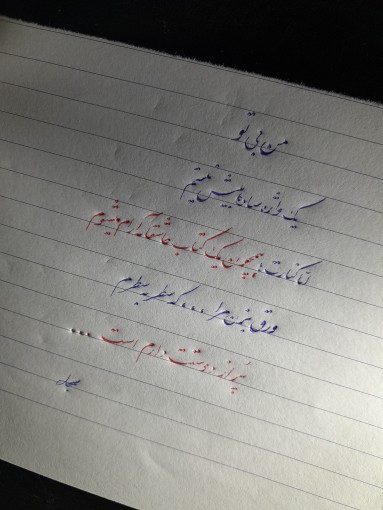 من بی تو
یک واژه ساده بیش نیستم
تا کنارت، همچون یک کتاب عاشقانه آرام میشوم
ورق بزن مرا... که سطر به سطرم
پُر از دوستت دارم است...